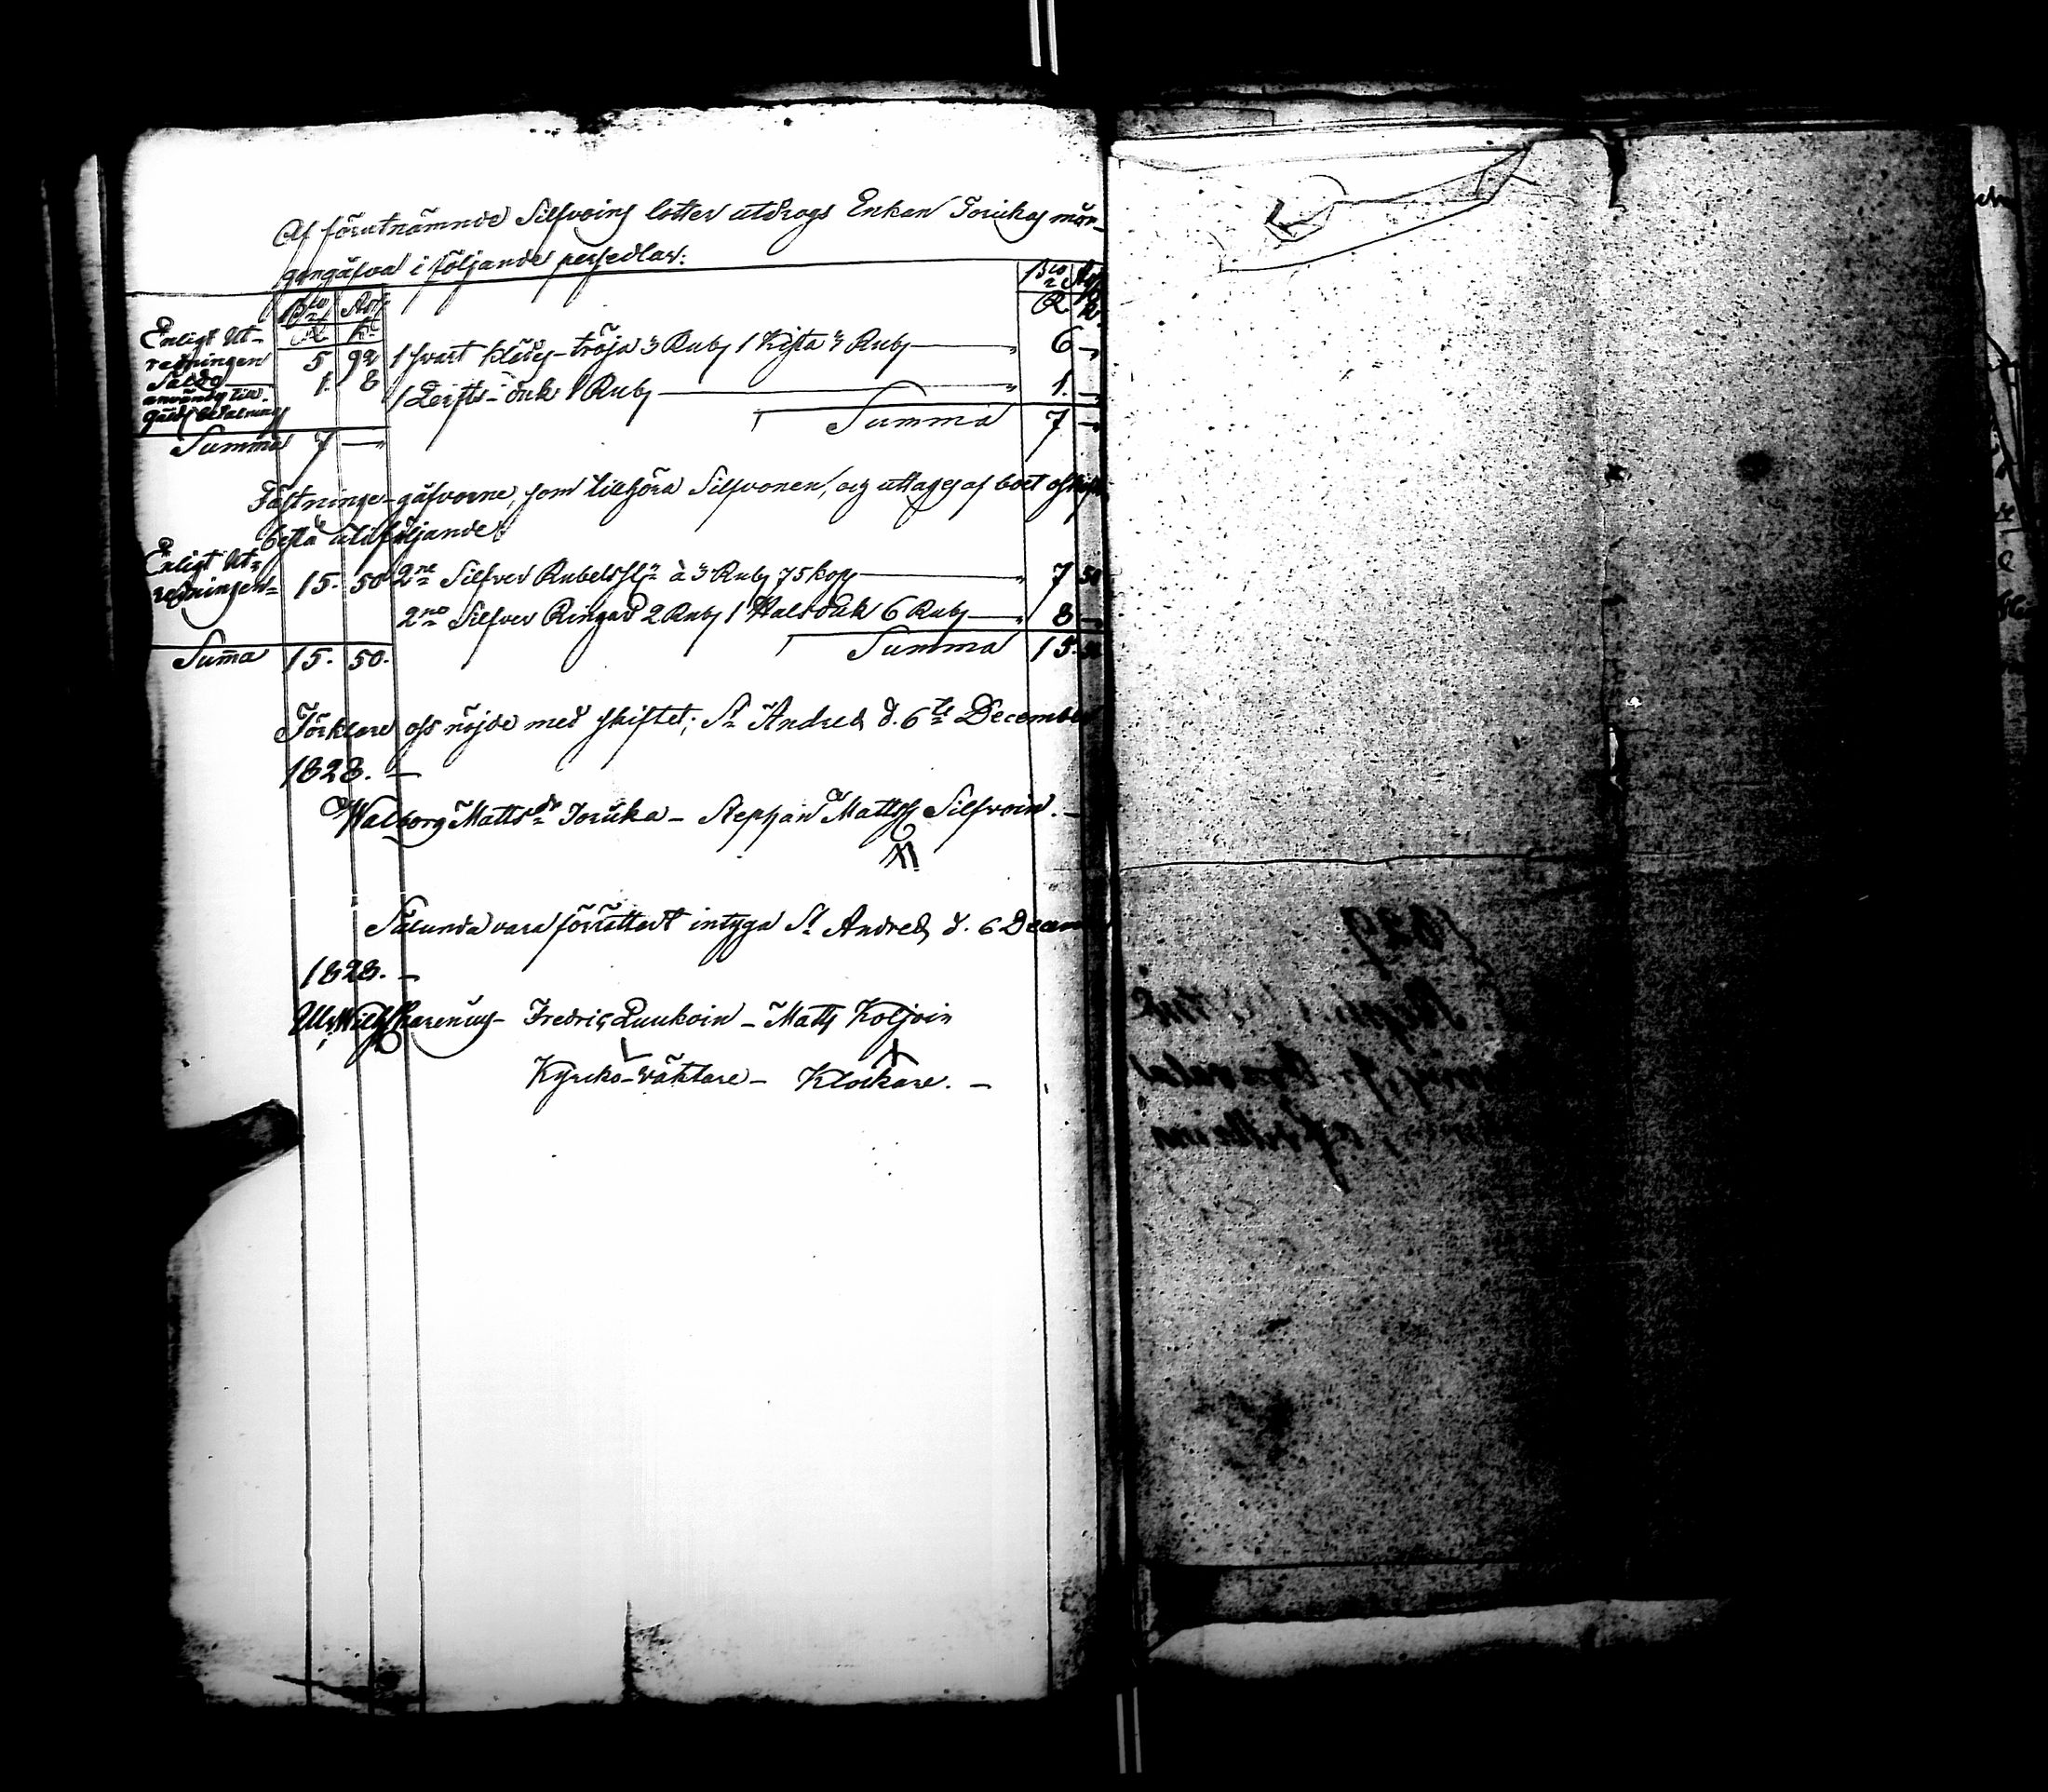 Af förutnämnde Silfvoins lotter utdrogs Enkan Torickas mor-
gongåfva i följande persedlar:
Bco Ass: Bco Ass
R K. R K.
Enligt Ut-
redningen 5 92 1 svart klädes-tröja 3 Rub; 1 Kista 3 Rub; 6 -
Saldo 1. 8 1 Lerfts-duk 1 Rub; 1. -
används till
gälds betalning Summa 7 -
Summa 7 -
Fästninge-gåfvorne, som tillhöra Silfvonen, og uttages af boet oskift
bestå uti följande:
Enligt Ut-
redningen 15. 50 2ne Silfver Rubelst:r à 3 Rub; 75 kop; 7 50
2ne Silfver Ringar 2 Rub; 1 Halsduk 6 Rub; 8 -
Summa 15. 50. Summa 15. 50
Förklare oss nöjde med skiftet; St Andreæ d. 6te December
1828. -
Walborg Mattsdr Toricka - Stephan Mattss Silfvoin. -
Sålunda vara förrättadt intyga St Andreæ d. 6 Decem
1828. -
Fredric Luukoin - Matts Koljoin
Kyrcko-väktare - Klockare. -
1829